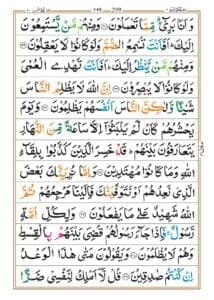 وَاَنَا بَرِیْٓءٌ مِّمَّا تَعْمَلُوْنَ وَمِنْهُمْ مَّنْ یَّسْتَمِعُوْنَ
اِلَیْكَ ؕ اَفَاَنْتَ تُسْمِعُ الصُّمَّ وَلَوْ كَانُوْا لَا یَعْقِلُوْنَ
وَمِنْهُمْ مَّنْ یَّنْظُرُ اِلَیْكَ ؕ اَفَاَنْتَ تَهْدِی الْعُمْیَ
وَلَوْ كَانُوْا لَا یُبْصِرُوْنَ اِنَّ اللّٰهَ لَا یَظْلِمُ النَّاسَ
شَیْئًا وَّلٰكِنَّ النَّاسَ اَنْفُسَهُمْ یَظْلِمُوْنَ وَیَوْمَ
یَحْشُرُهُمْ كَاَنْ لَّمْ یَلْبَثُوْۤا اِلَّا سَاعَةً مِّنَ النَّهَارِ
یَتَعَارَفُوْنَ بَیْنَهُمْ ؕ قَدْ خَسِرَ الَّذِیْنَ كَذَّبُوْا بِلِقَآءِ
اللّٰهِ وَمَا كَانُوْا مُهْتَدِیْنَ وَاِمَّا نُرِیَنَّكَ بَعْضَ
الَّذِیْ نَعِدُهُمْ اَوْ نَتَوَفَّیَنَّكَ فَاِلَیْنَا مَرْجِعُهُمْ ثُمَّ
اللّٰهُ شَهِیْدٌ عَلٰی مَا یَفْعَلُوْنَ وَلِكُلِّ اُمَّةٍ
رَّسُوْلٌ ۚ فَاِذَا جَآءَ رَسُوْلُهُمْ قُضِیَ بَیْنَهُمْ بِالْقِسْطِ
وَهُمْ لَا یُظْلَمُوْنَ وَیَقُوْلُوْنَ مَتٰی هٰذَا الْوَعْدُ
اِنْ كُنْتُمْ صٰدِقِیْنَ قُلْ لَّاۤ اَمْلِكُ لِنَفْسِیْ ضَرًّا